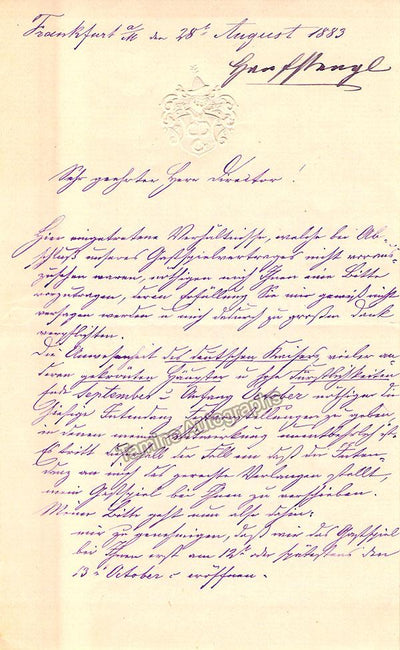 Frankfurt a/M den 28t August 1883
Hanfstaengl
Sehr geehrter Herr Director!
Hier eingetretene Verhältnisse, welche bei Ab-
schluß unseres Gastspielvertrages nicht voraus-
zusehen waren, nöthigen mich Ihnen eine Bitte
vorzutragen, deren Erfüllung Sie mir gewiß nicht
versagen werden u mich dadurch zu großem Dank
verpflichten.
Die Anwesenheit des deutschen Kaisers vieler an-
deren gekrönten Häupter u Fürstlichkeiten
Ende September u Anfang October nöthigen die
hiesige Intendanz Vorstellungen zu geben,
in denen meine Mitwirkung unentbehrlich ist.
Es tritt deßhalb der Fall ein daß die Inten-
danz an mich das gerechte Verlangen stellt,
mein Gastspiel bei Ihnen zu verschieben.
Meine Bitte geht nun also dahin:
mir zu genehmigen, daß wir das Gastspiel
bei Ihnen erst am 12t oder spätestens den
13t October eröffnen.
Tamino Autographs